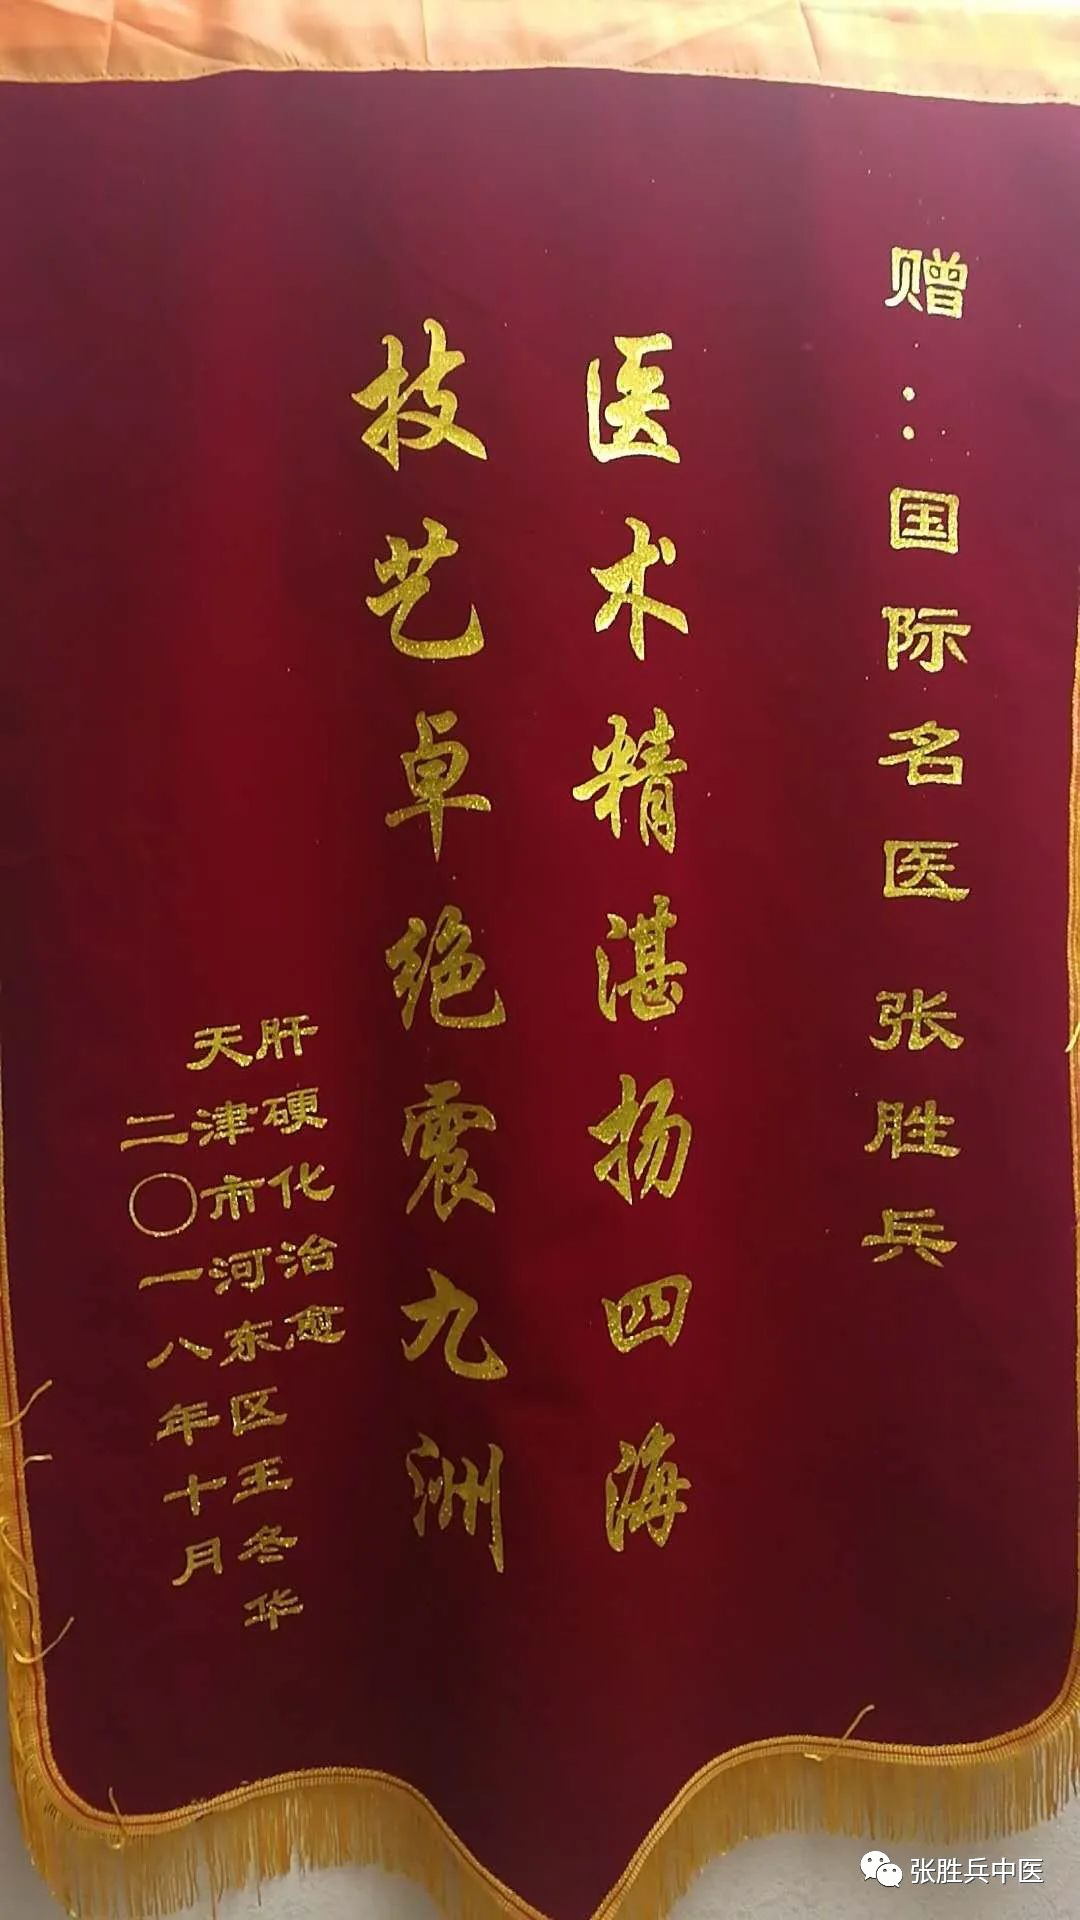 赠：国际名医 张胜兵
医术精湛扬四海
技艺卓绝震九洲
肝硬化治愈
天津市河东区王冬华
二〇一八年十月
张胜兵中医